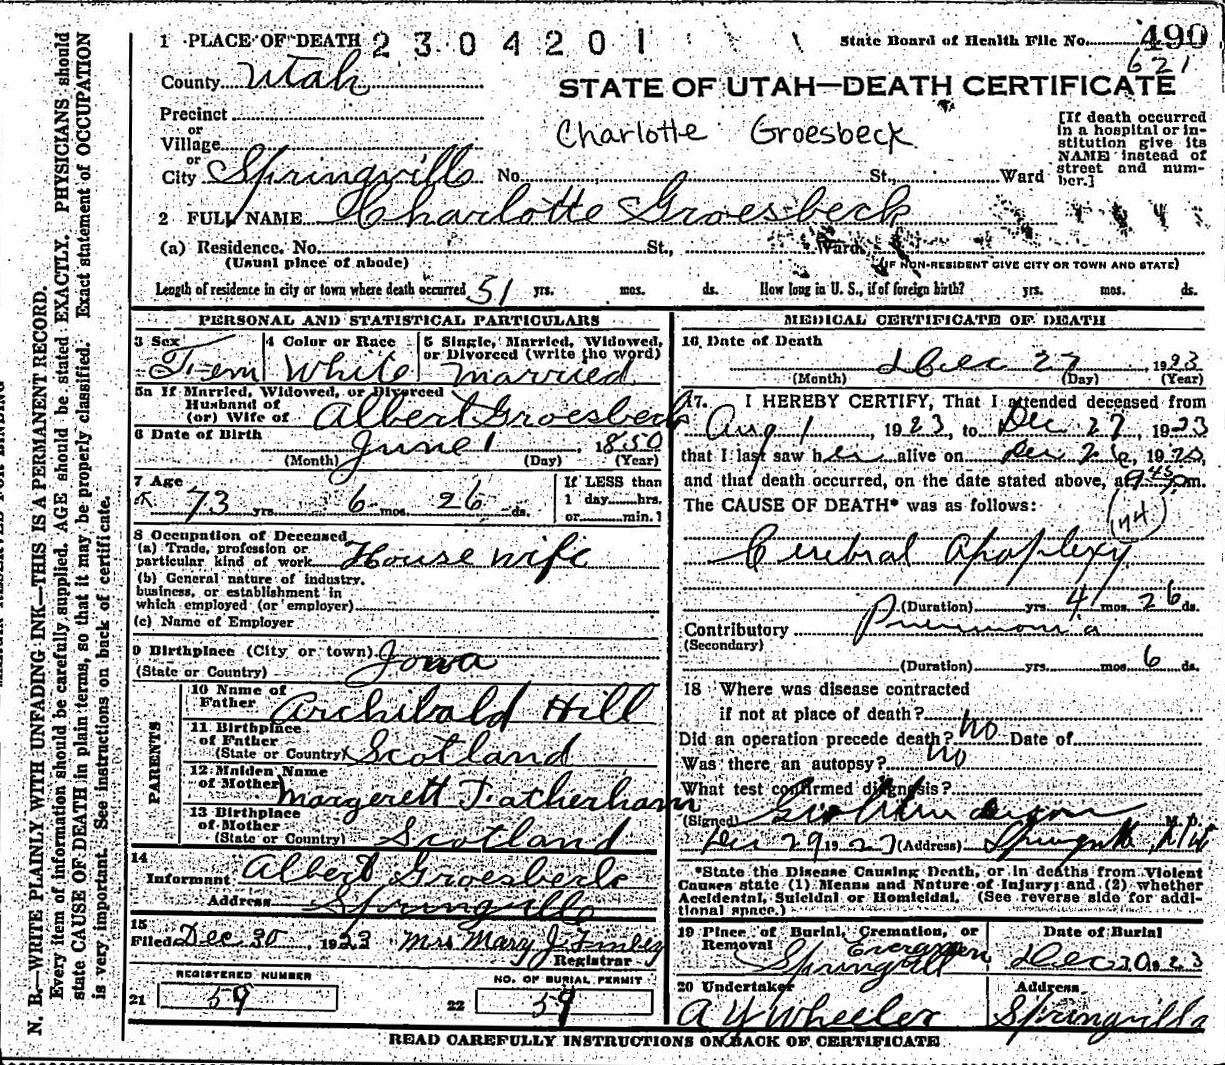 1 PLACE OF DEATH 2304201
State Board of Health File No. 490
621
County Utah
STATE OF UTAH—DEATH CERTIFICATE
Charlotte Groesbeck
Precinct
or
Village
or
City Springville No. St., Ward
[If death occurred
in a hospital or in-
stitution give its
NAME instead of
street and num-
ber.]
2 FULL NAME Charlotte Groesbeck
(a) Residence. No. St., Ward.
(Usual place of abode) (IF NON-RESIDENT GIVE CITY OR TOWN AND STATE)
Length of residence in city or town where death occurred 51 yrs. mos. ds. How long in U. S., if of foreign birth? yrs. mos. ds.
PERSONAL AND STATISTICAL PARTICULARS
3 Sex Fem
4 Color or Race White
5 Single, Married, Widowed,
or Divorced (write the word)
Married
5a If Married, Widowed, or Divorced
Husband of
(or) Wife of Albert Groesbeck
6 Date of Birth June 1 1850
(Month) (Day) (Year)
7 Age 73 yrs. 6 mos. 26 ds.
If LESS than
1 day hrs.
or min.?
8 Occupation of Deceased
(a) Trade, profession or
particular kind of work House wife
(b) General nature of industry,
business, or establishment in
which employed (or employer)
(c) Name of Employer
9 Birthplace (City or town) Iowa
(State or Country)
PARENTS
10 Name of
Father Archibald Hill
11 Birthplace
of Father
(State or Country) Scotland
12 Maiden Name
of Mother Margerett Fatherham
13 Birthplace
of Mother
(State or Country) Scotland
14
Informant Albert Groesbeck
Address Springville
15
Filed Dec 30 1923 Mrs Mary J.
Registrar
REGISTERED NUMBER
21 59
NO. OF BURIAL PERMIT
22 59
MEDICAL CERTIFICATE OF DEATH
16 Date of Death
Dec 27, 1923
(Month) (Day) (Year)
17. I HEREBY CERTIFY, That I attended deceased from
Aug 1, 1923, to Dec 27, 1923
that I last saw her alive on Dec 26, 19
and that death occurred, on the date stated above, at 9 45 pm.
The CAUSE OF DEATH* was as follows:
(74)
Cerebral Apoplexy
(Duration) yrs. 4 mos. 26 ds.
Contributory Pneumonia
(Secondary)
(Duration) yrs. mos. 6 ds.
18 Where was disease contracted
if not at place of death?
Did an operation precede death? No Date of
Was there an autopsy? No
What test confirmed diagnosis?
(Signed) M. D.
Dec 29 1923 (Address) Springville, Ut
*State the Disease Causing Death, or in deaths from Violent
Causes state (1) Means and Nature of Injury; and (2) whether
Accidental, Suicidal or Homicidal. (See reverse side for addi-
tional space.)
19 Place of Burial, Cremation, or
Removal Evergreen
Springville
Date of Burial
Dec 30 1923
20 Undertaker
A Y Wheeler
Address
Springville
READ CAREFULLY INSTRUCTIONS ON BACK OF CERTIFICATE
N. B.—WRITE PLAINLY WITH UNFADING INK—THIS IS A PERMANENT RECORD.
Every item of information should be carefully supplied. AGE should be stated EXACTLY. PHYSICIANS should
state CAUSE OF DEATH in plain terms, so that it may be properly classified. Exact statement of OCCUPATION
is very important. See instructions on back of certificate.